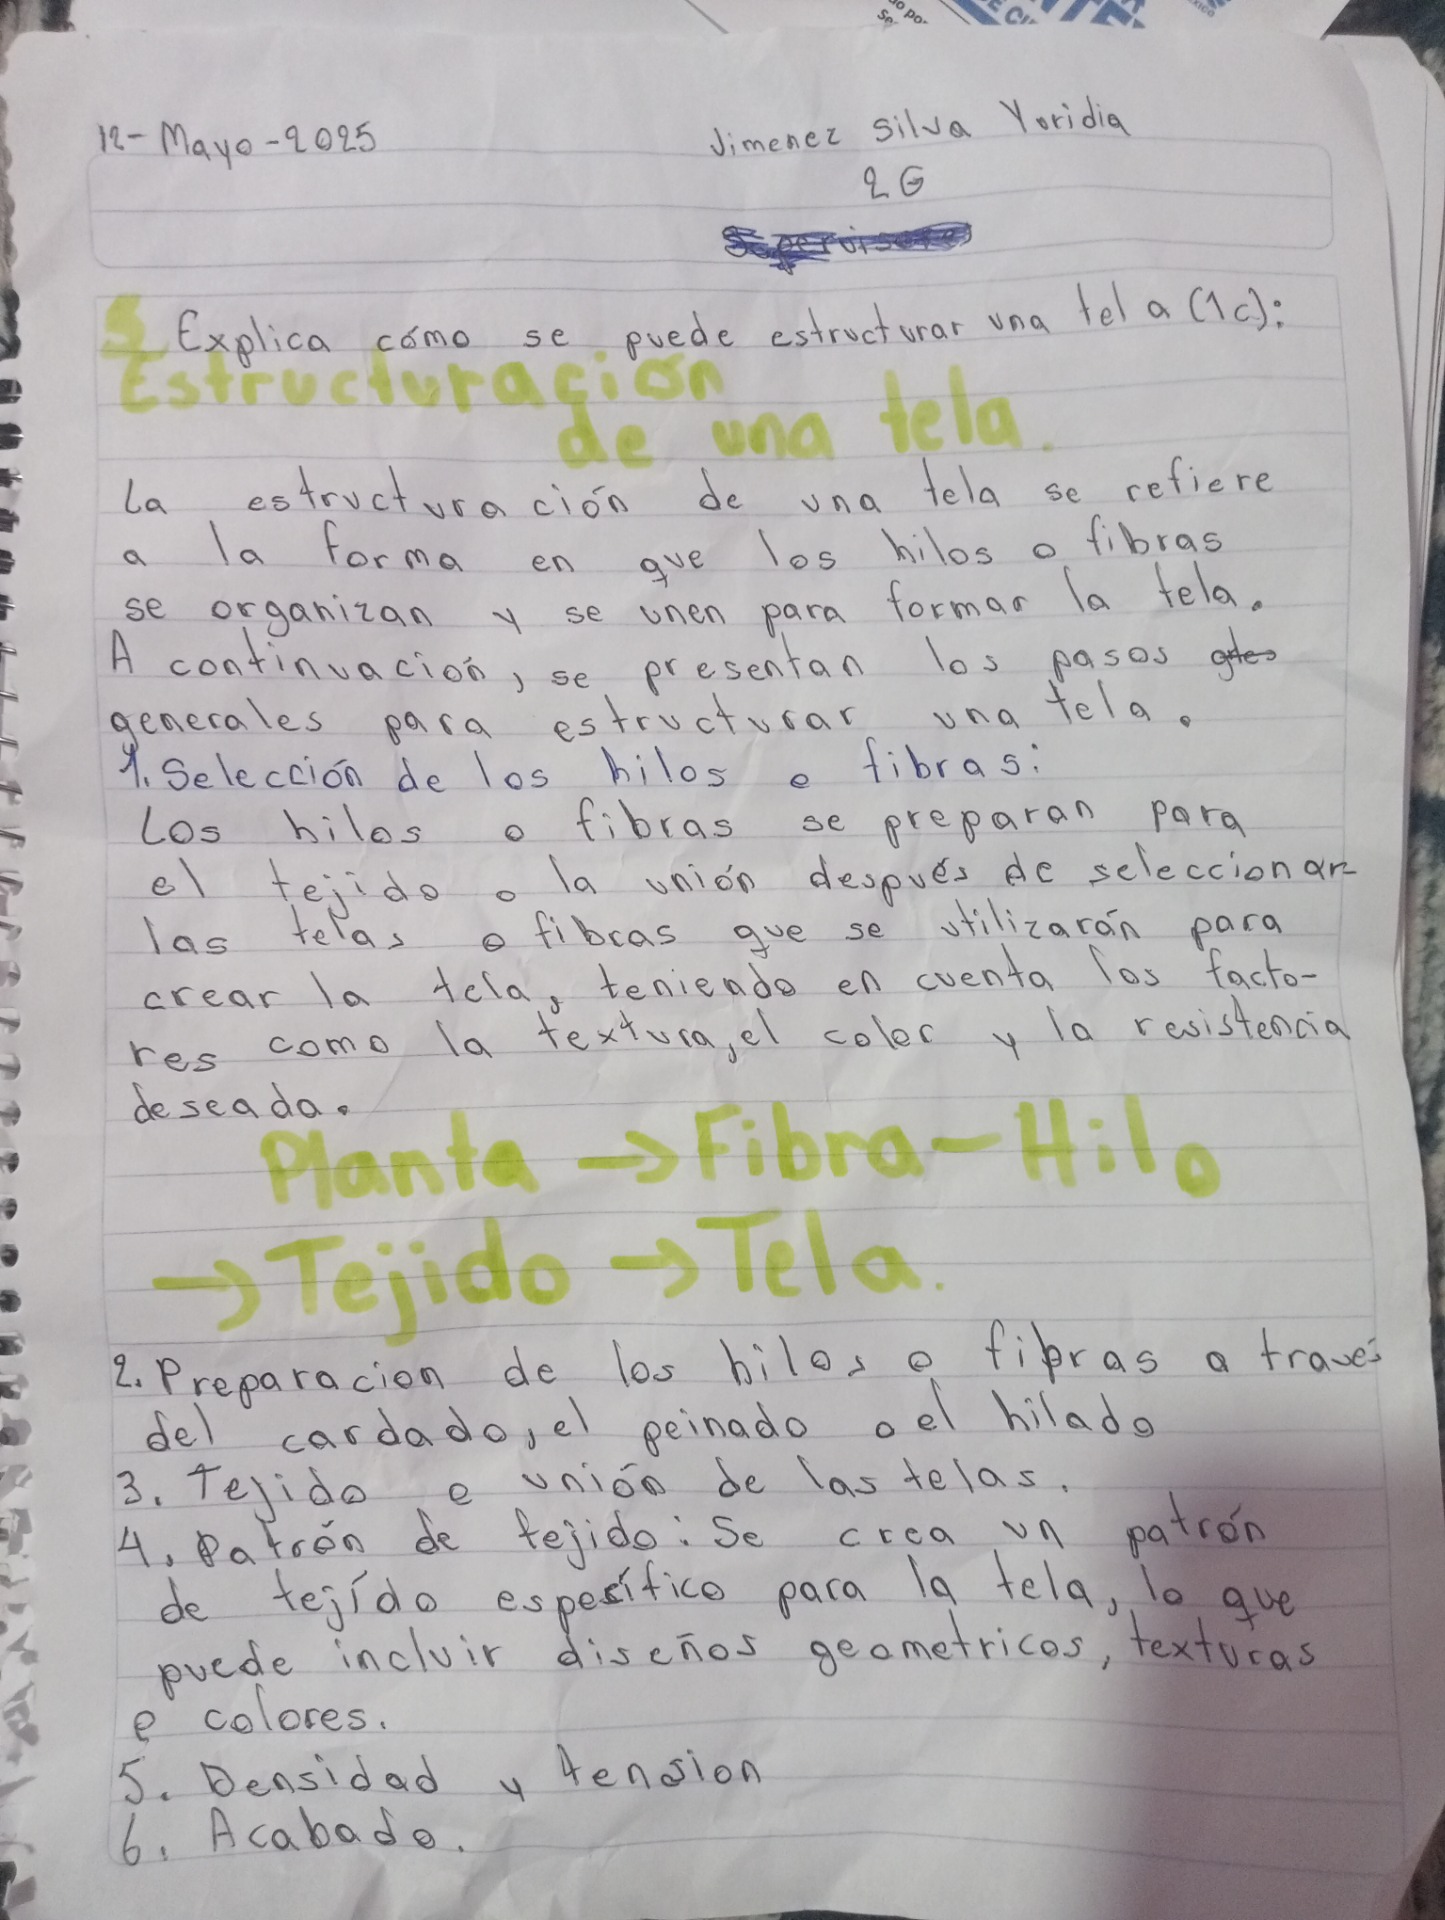 12-Mayo-2025
Jimenez Silva Yoridia
2G
5 Explica cómo se puede estructurar una tela (1c):
Estructuración
de una tela.
La estructuración de una tela se refiere
a la forma en que los hilos o fibras
se organizan y se unen para formar la tela.
A continuación, se presentan los pasos
generales para estructurar una tela.
1. Selección de los hilos o fibras:
Los hilos o fibras se preparan para
el tejido o la unión después de seleccionar
las telas o fibras que se utilizarán para
crear la tela, teniendo en cuenta los facto-
res como la textura, el color y la resistencia
deseada.
Planta → Fibra - Hilo
→ Tejido → Tela.
2. Preparacion de los hilos o fibras a través
del cardado, el peinado o el hilado
3. Tejido o unión de las telas.
4. Patrón de tejido: Se crea un patrón
de tejído específico para la tela, lo que
puede incluir diseños geometricos, texturas
o colores.
5. Densidad y tension
6. Acabado.